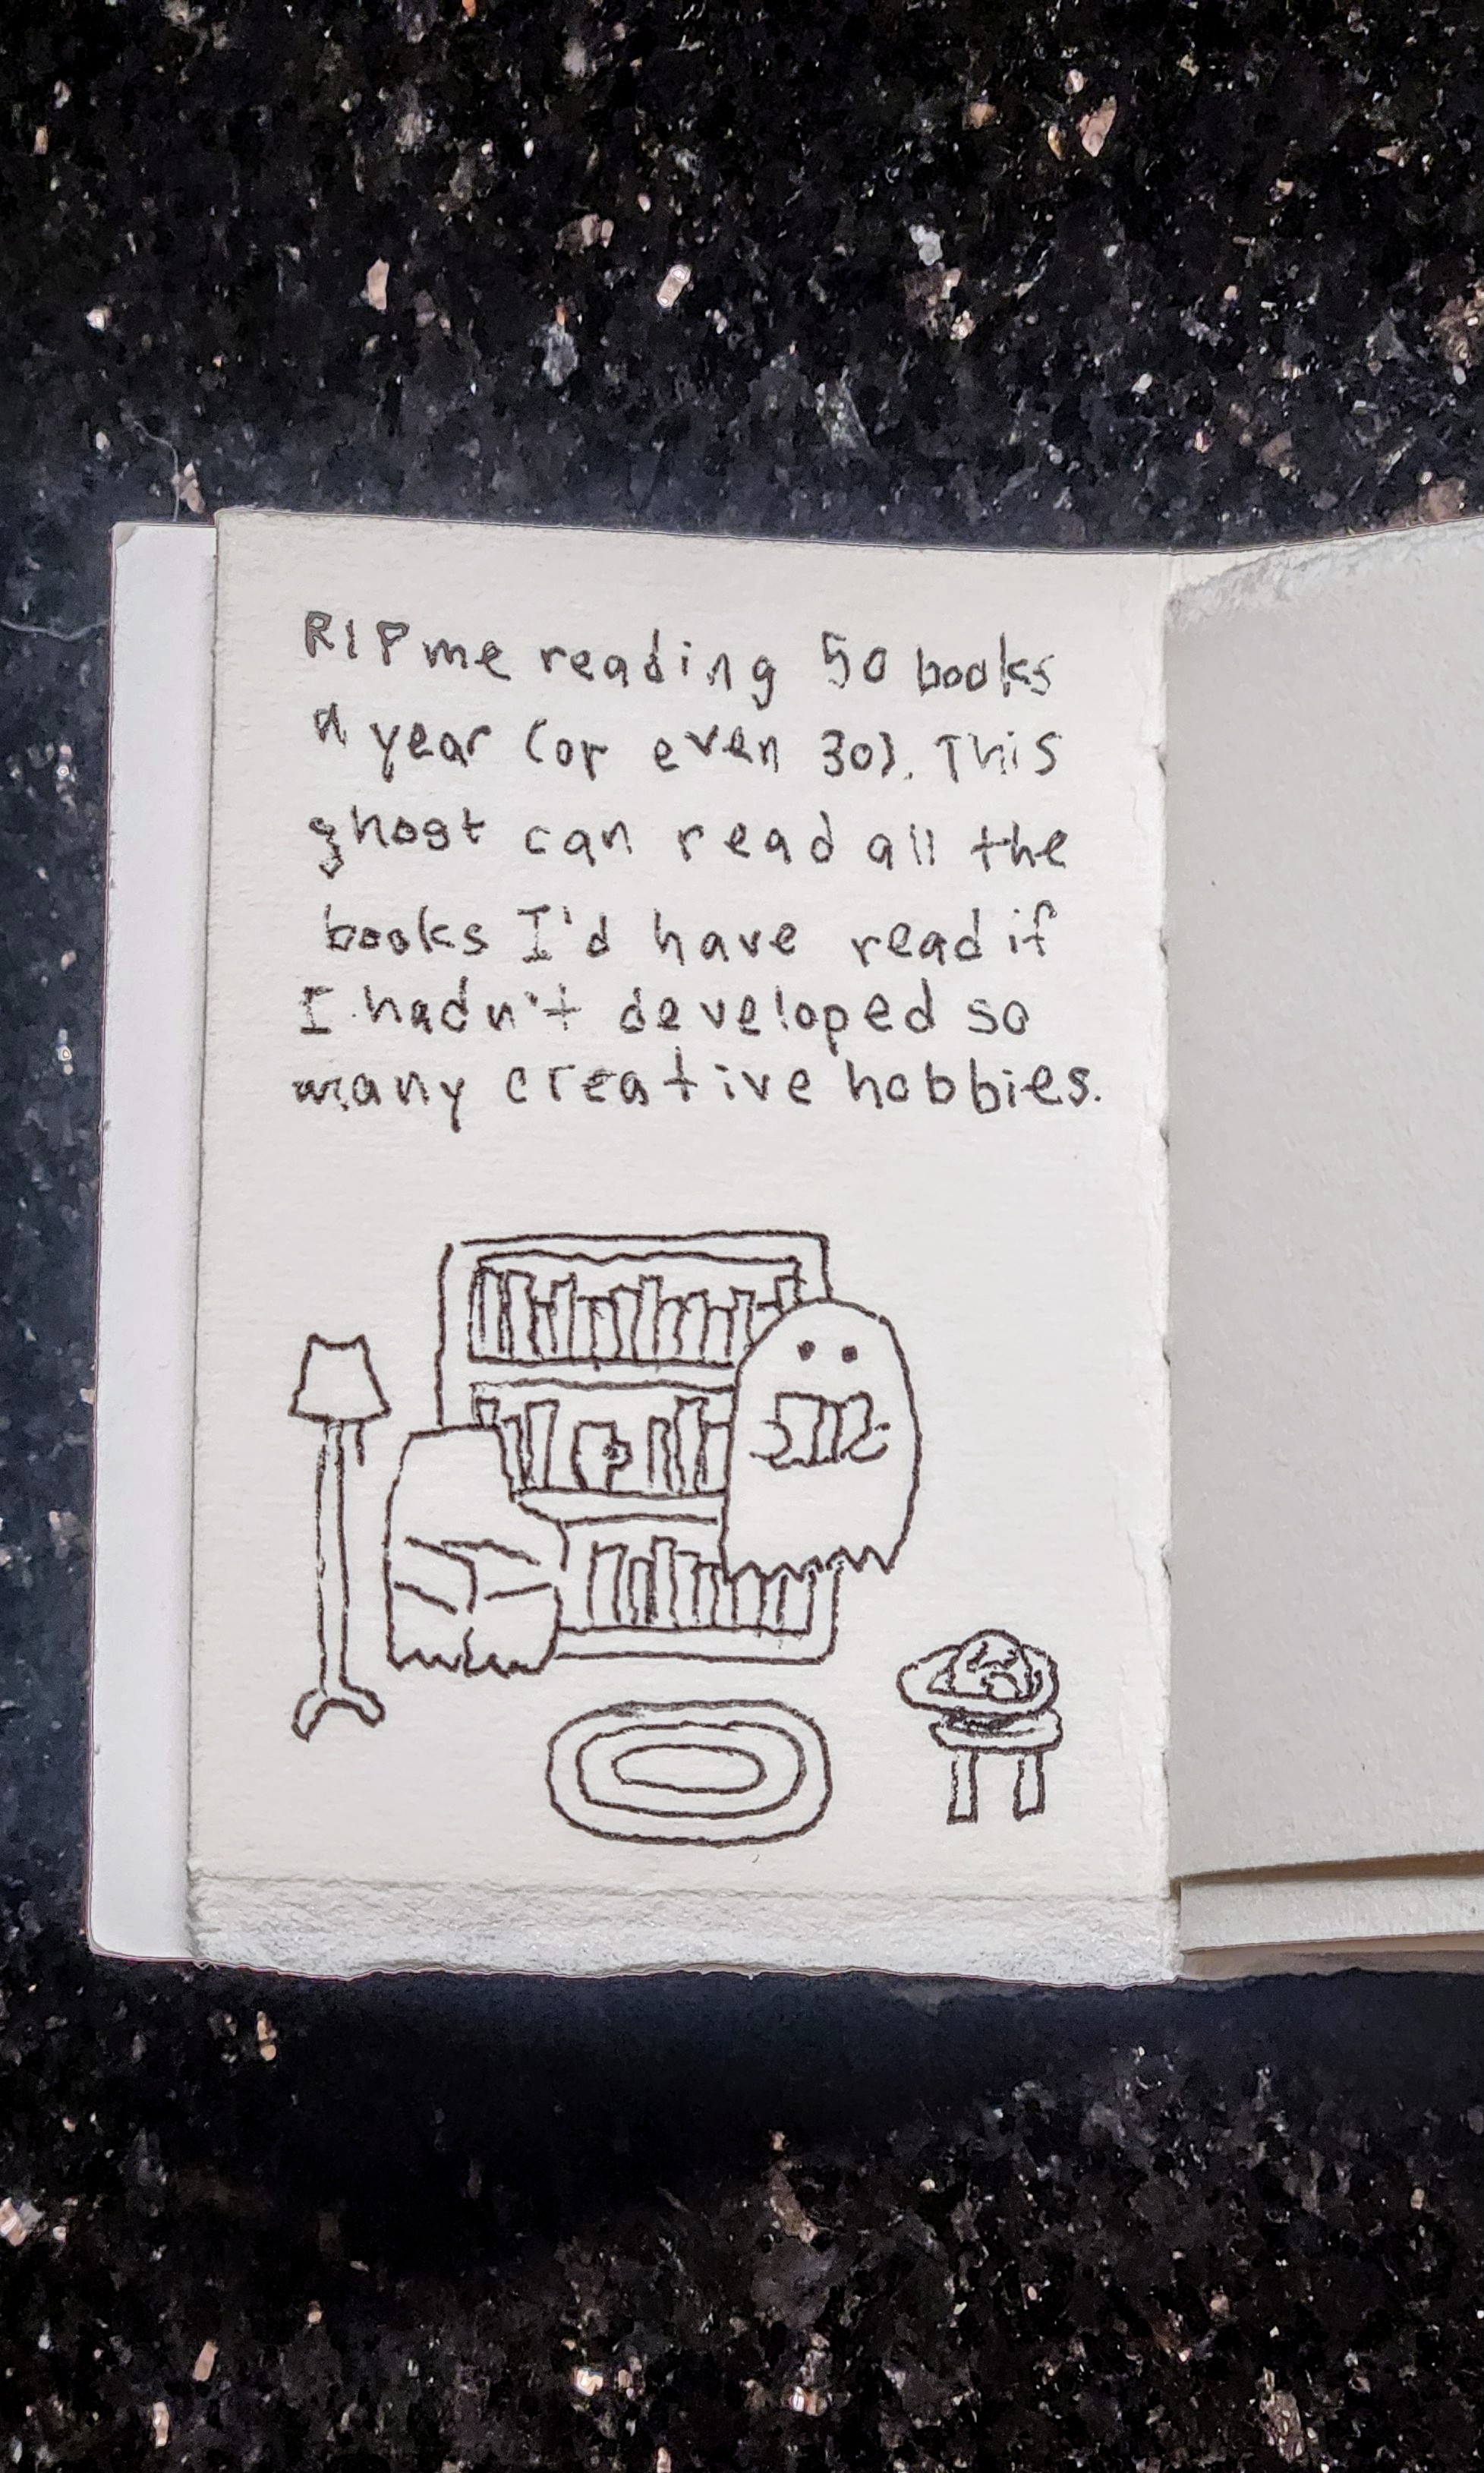 RIP me reading 50 books
a year (or even 30). This
ghost can read all the
books I'd have read if
I hadn't developed so
many creative hobbies.